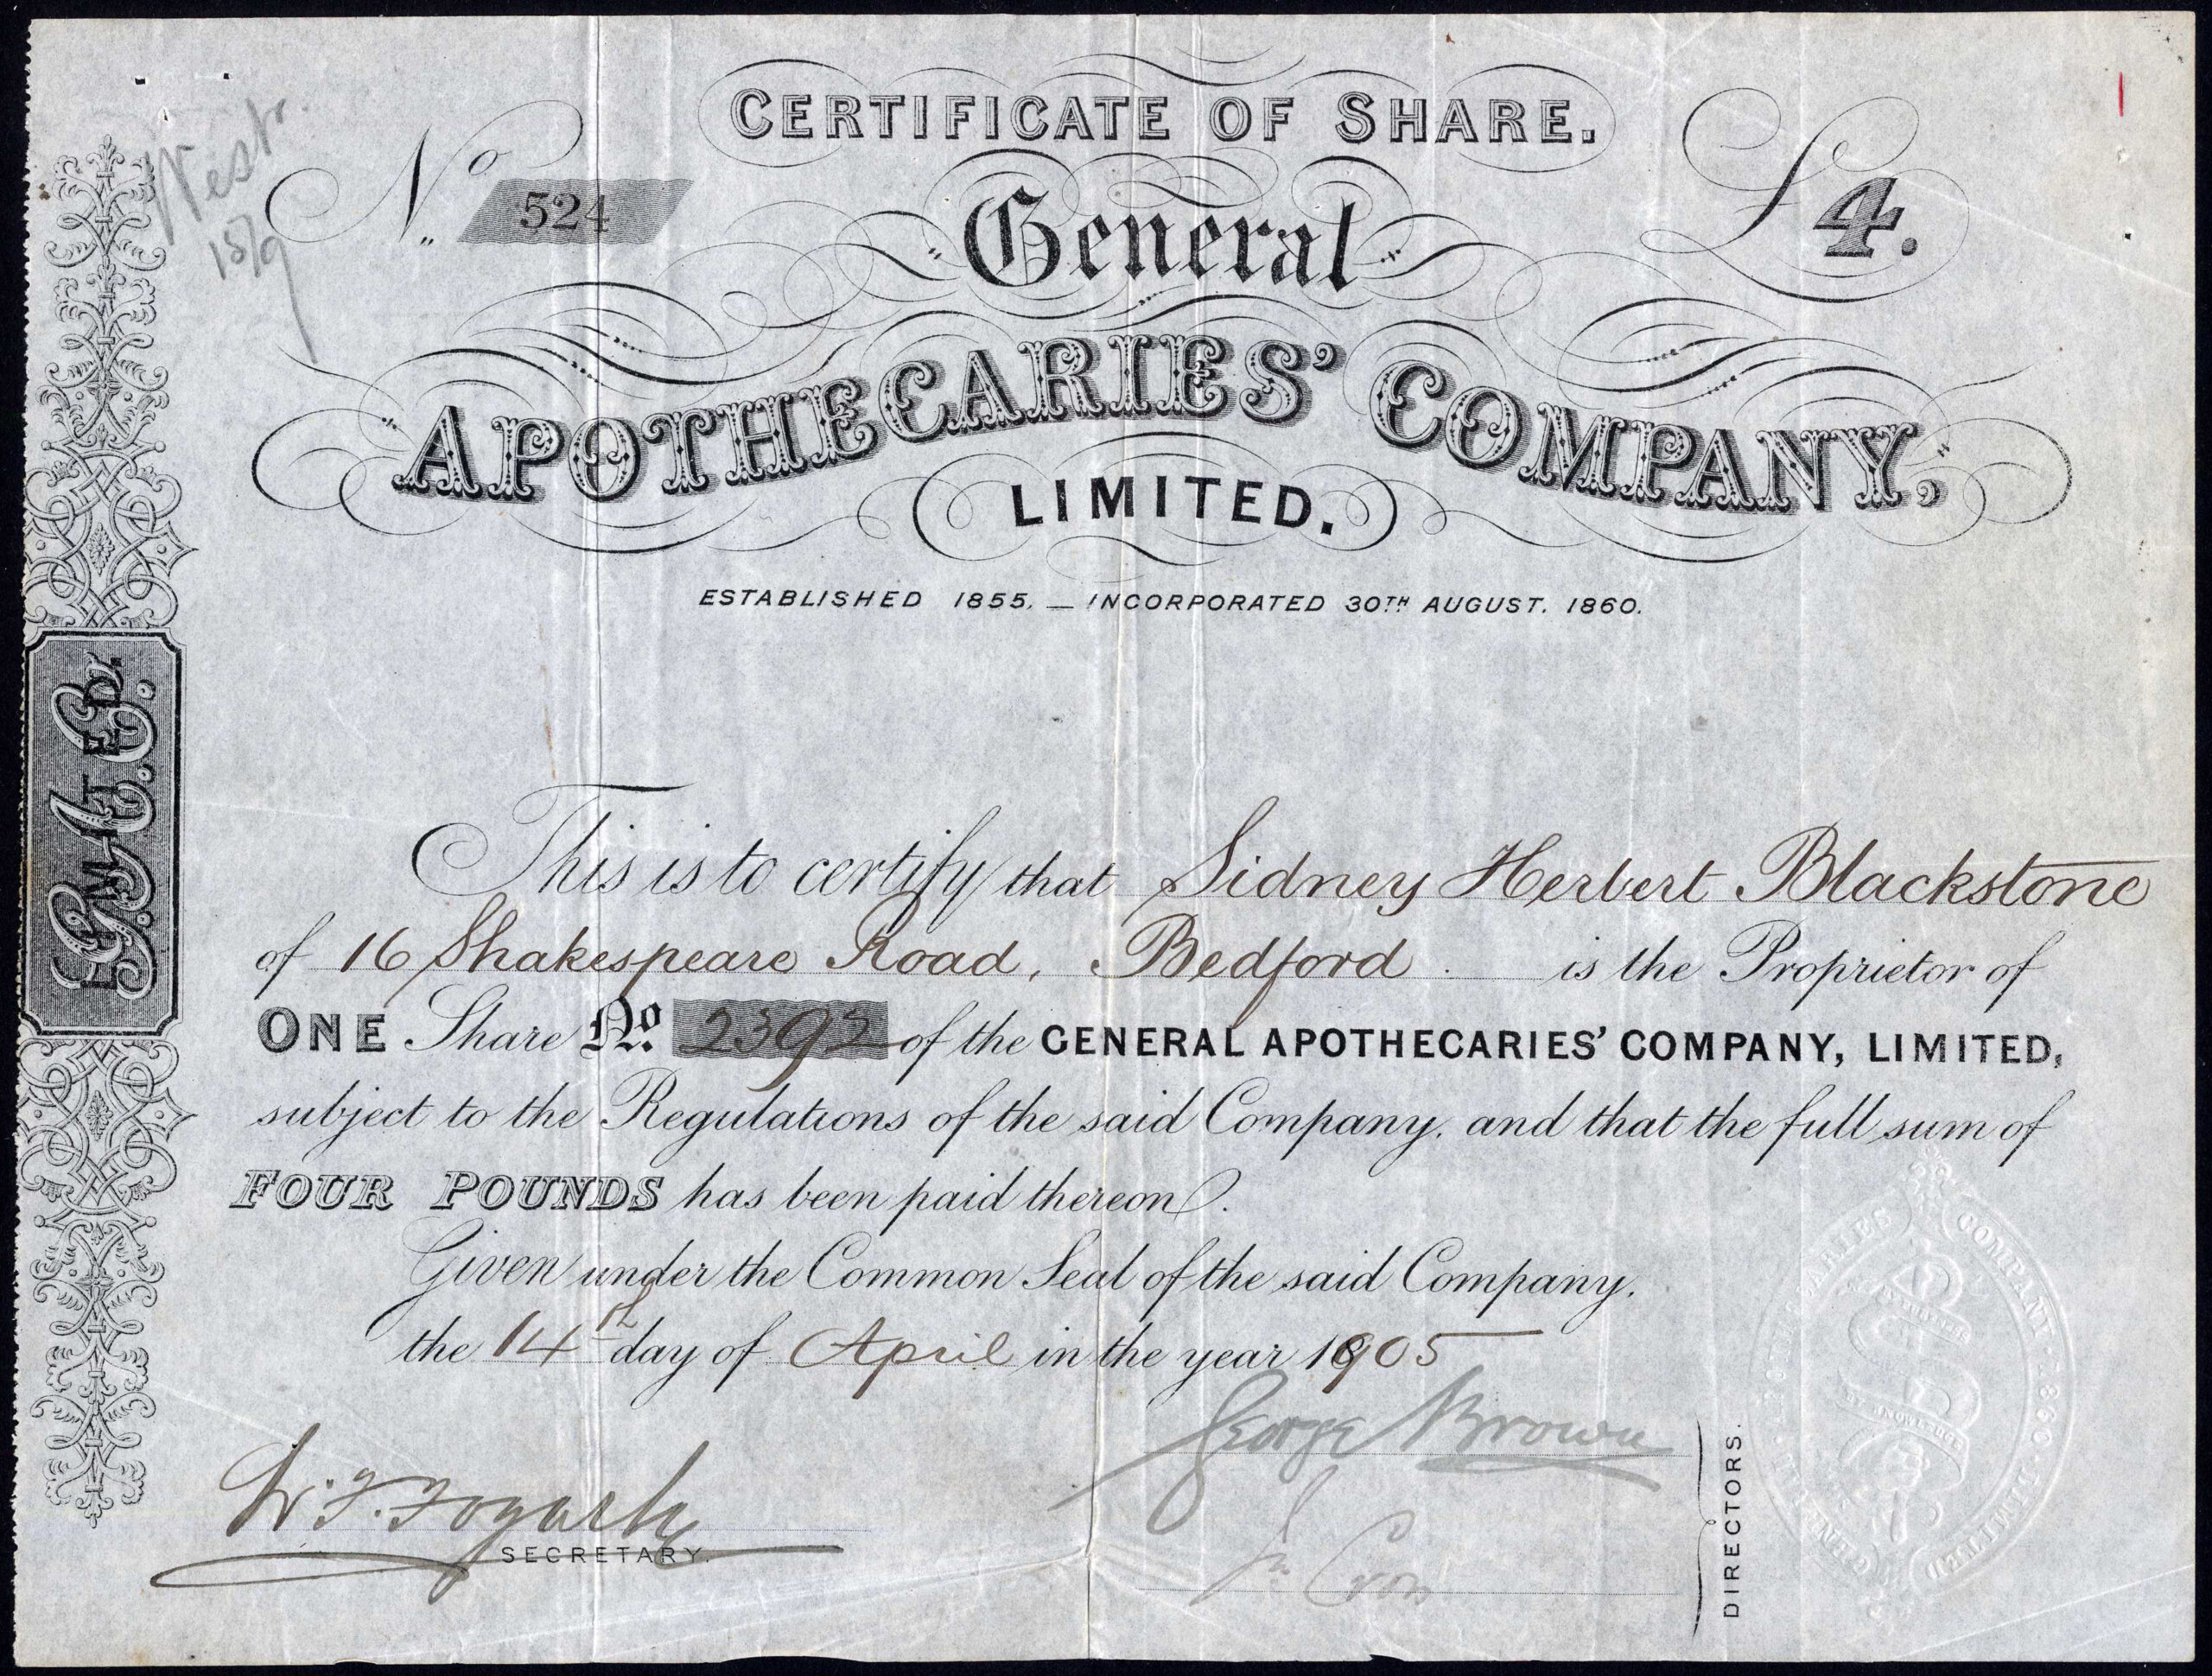 CERTIFICATE OF SHARE.
No 524
£4.
General
APOTHECARIES' COMPANY,
LIMITED.
ESTABLISHED 1855. — INCORPORATED 30TH AUGUST. 1860.
G.A.C.
LIMITED.
This is to certify that Sidney Herbert Blackstone
of 16 Shakespeare Road, Bedford. is the Proprietor of
ONE Share No. 2392 of the GENERAL APOTHECARIES' COMPANY, LIMITED,
subject to the Regulations of the said Company, and that the full sum of
FOUR POUNDS has been paid thereon.
Given under the Common Seal of the said Company,
the 14th day of April in the year 1905
George Brown
SECRETARY.
DIRECTORS.
GENERAL APOTHECARIES COMPANY LIMITED